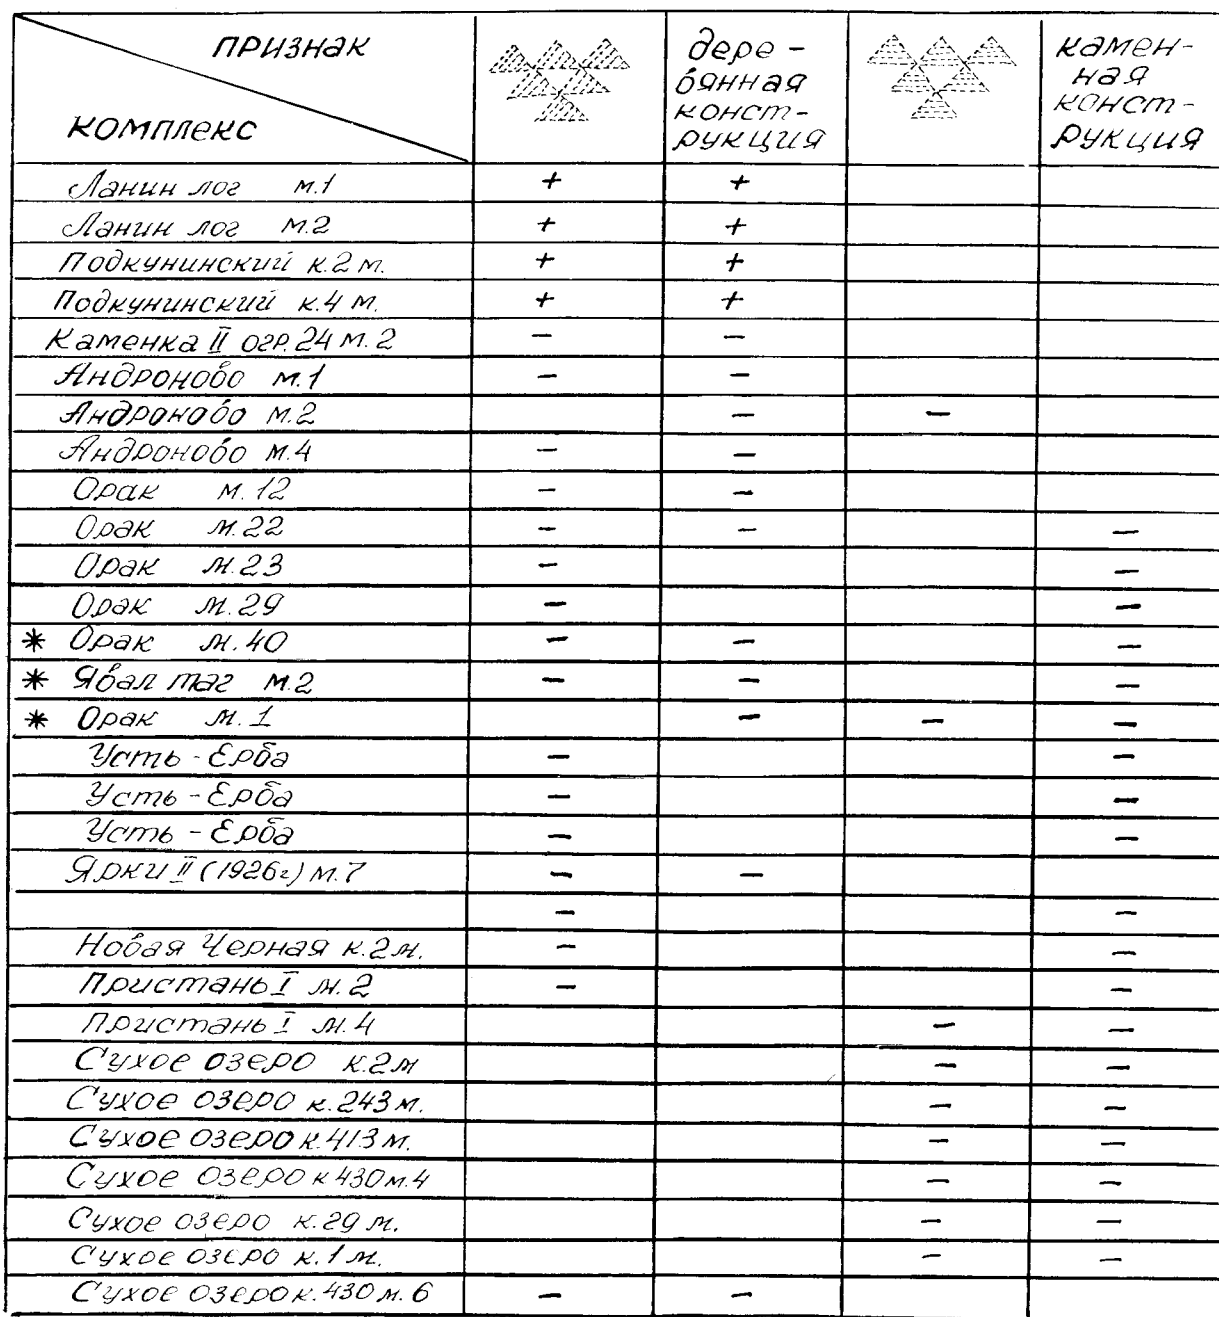 признак
комплекс
дере-
вянная
конст-
рукция
камен-
ная
конст-
рукция
Ланин лог м.1 + +
Ланин лог м.2 + +
Подкунинский к.2 м. + +
Подкунинский к.4 м. + +
Каменка II огр.24 м.2 – –
Андроново м.1 – –
Андроново м.2 – –
Андроново м.4 – –
Орак м.12 – –
Орак м.22 – – –
Орак м.23 – –
Орак м.29 – –
* Орак м.40 – – –
* Явал таг м.2 – – –
* Орак м.1 – – –
Усть-Ерба – –
Усть-Ерба – –
Усть-Ерба – –
Ярки II (1926г.) м.7 – –
– –
Новая Черная к.2 м. – –
Пристань I м.2 – –
Пристань I м.4 – –
Сухое озеро к.2 м – –
Сухое озеро к.243 м. – –
Сухое озеро к.413 м. – –
Сухое озеро к 430 м.4 – –
Сухое озеро к.29 м. – –
Сухое озеро к.1 м. – –
Сухое озеро к.430 м.6 – –